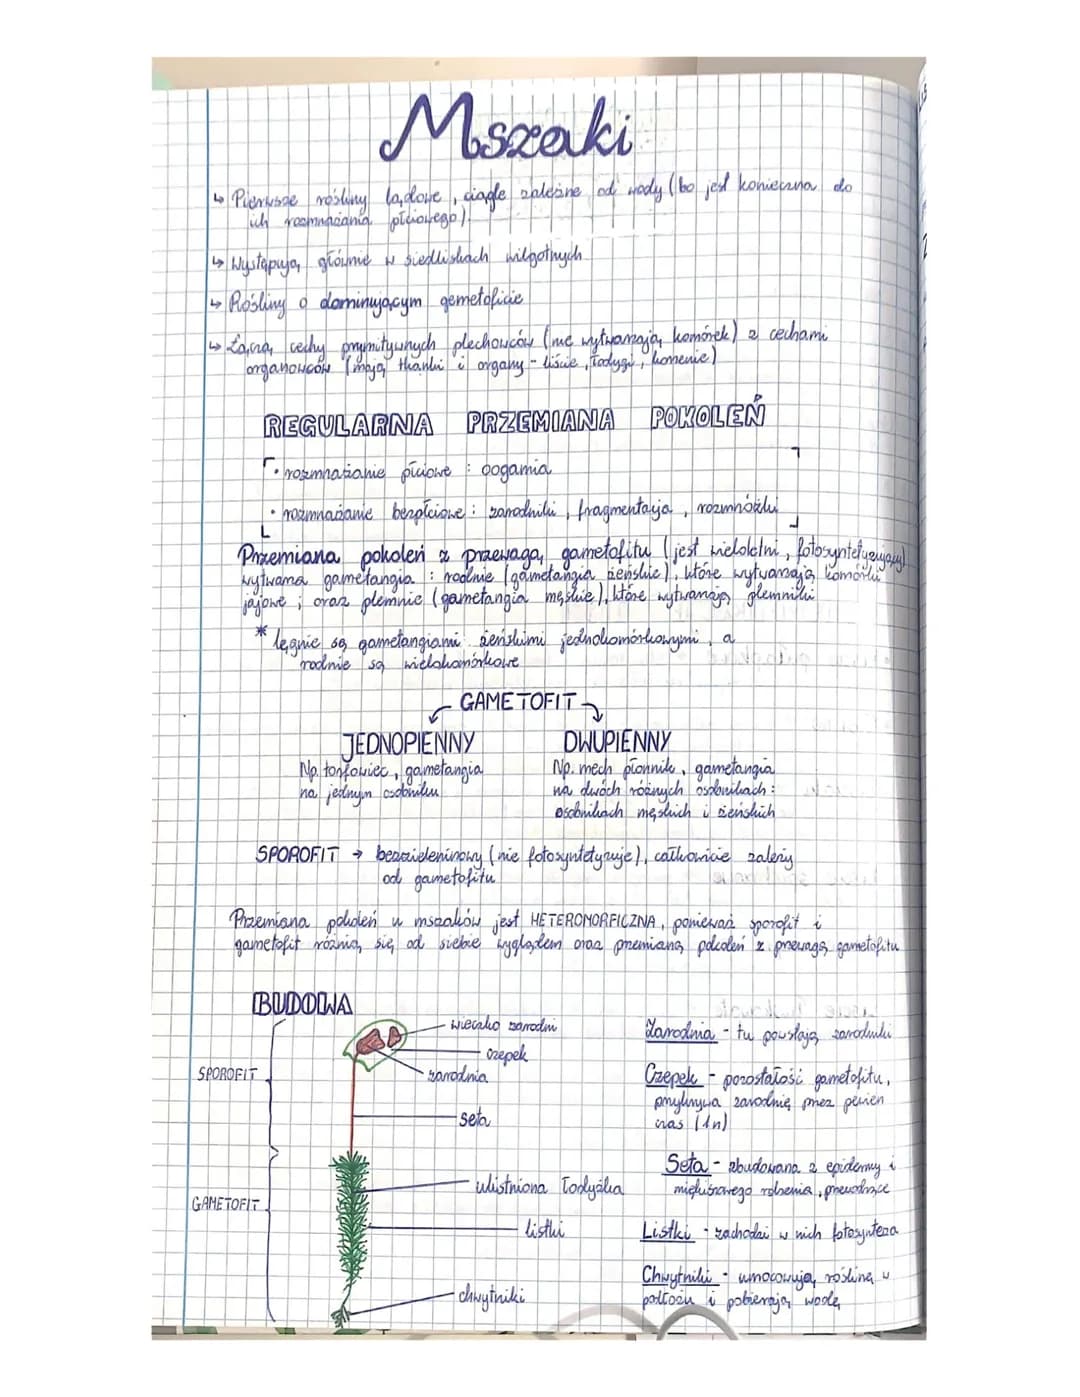 Mszaki
↳ Pierwsze rośliny lądowe, ciągle zależne od wody (bo jest konieczna do
ich rozmnażania płciowego).
↳ Występują głównie w siedliskach wilgotnych
↳ Rośliny o dominującym gametoficie
↳ Łączą cechy prymitywnych plechowców (nie wytwarzają komórek) z cechami
organowców (mają tkanki i organy - liście, łodygi, korzenie)
REGULARNA PRZEMIANA POKOLEŃ
• rozmnażanie płciowe : oogamia
• rozmnażanie bezpłciowe : zarodniki, fragmentacja, rozmnóżki
Przemiana pokoleń z przewagą gametofitu (jest wieloletni, fotosyntetyzujący)
wytwarza gametangia : rodnie (gametangia żeńskie), które wytwarzają komórki
jajowe ; oraz plemnie (gametangia męskie), które wytwarzają plemniki
* lęgnie są gametangiami żeńskimi jednokomórkowymi, a
rodnie są wielokomórkowe
GAMETOFIT
JEDNOPIENNY DWUPIENNY
Np. torfowiec, gametangia Np. mech płonnik, gametangia
na jednym osobniku na dwóch różnych osobnikach :
osobnikach męskich i żeńskich
SPOROFIT → bezzieleniowy (nie fotosyntetyzuje), całkowicie zależy
od gametofitu
Przemiana pokoleń u mszaków jest HETEROMORFICZNA, ponieważ sporofit i
gametofit różnią się od siebie wyglądem oraz przemianą pokoleń z przewagą gametofitu
BUDOWA
wieczko zarodni
czepek
zarodnia
SPOROFIT
seta
ulistniona łodyżka
GAMETOFIT
listki
chwytniki
Zarodnia - tu powstają zarodniki
Czepek - pozostałość gametofitu,
przykrywa zarodnię przez pewien
czas (1n)
Seta - zbudowana z epidermy i
miękiszowego rdzenia, przewodzące
Listki - zachodzi w nich fotosynteza
Chwytniki - umocowują roślinę w
podłożu i pobierają wodę